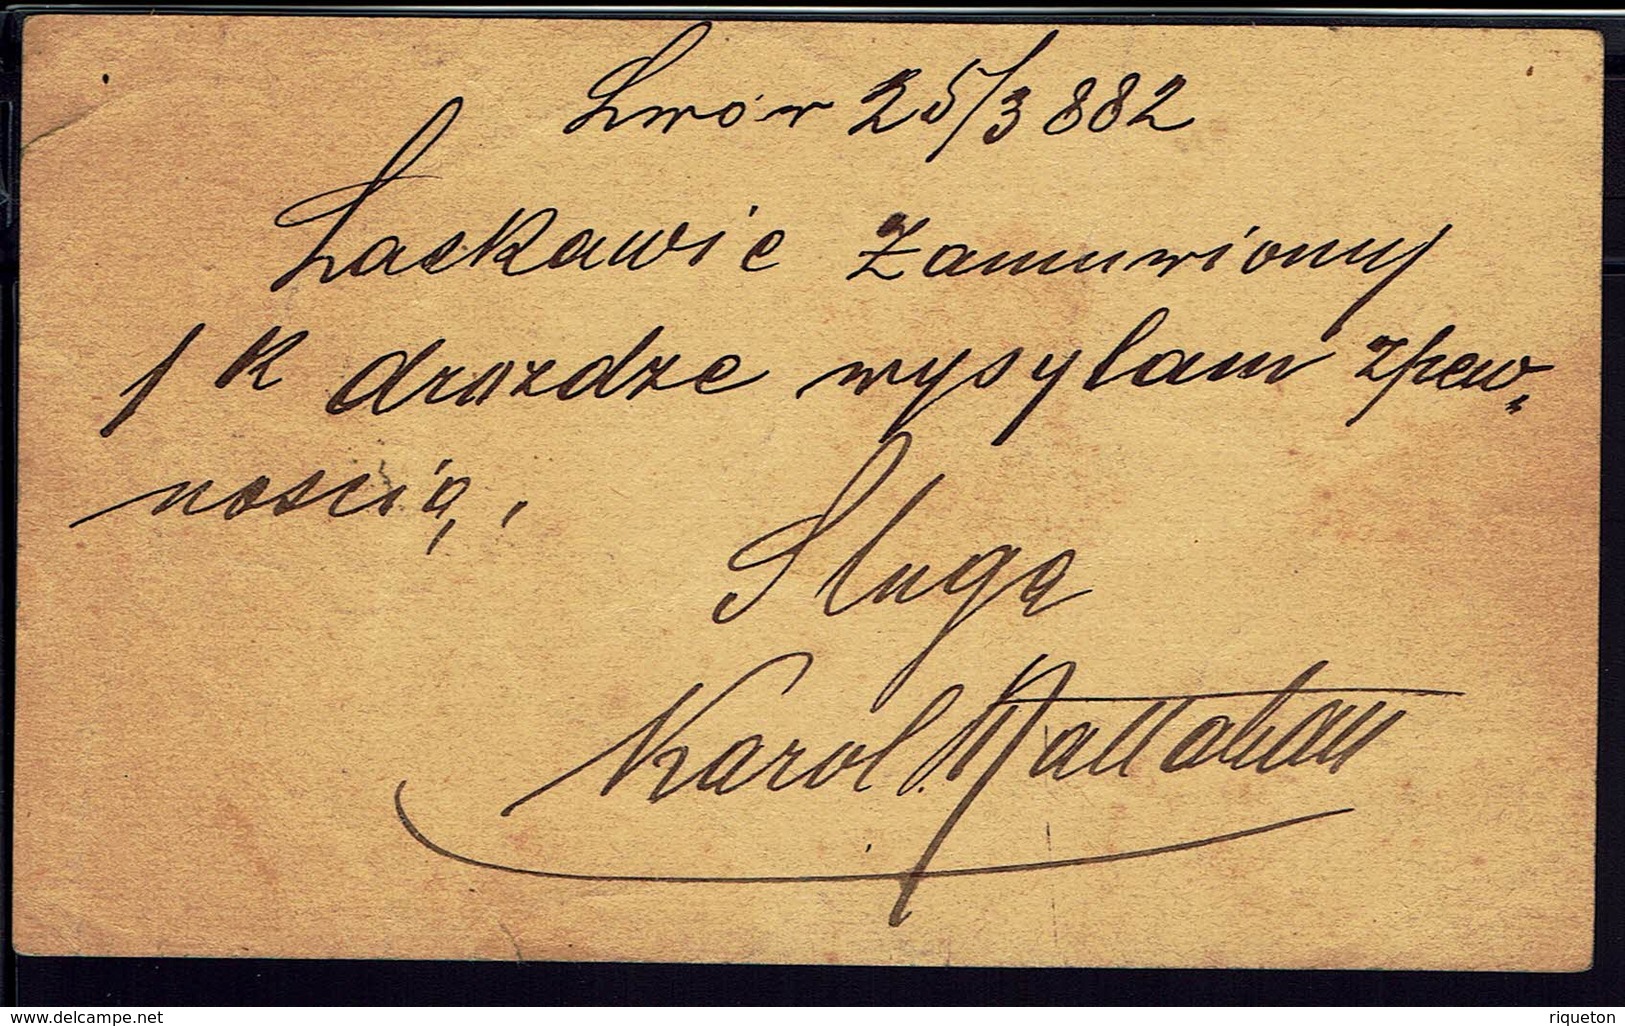 Lwów 25/3 882
Łaskawie zamuwiony
1 K drozdze wysylam zpew„
noscią,
Sluga
Karol
www.delcampe.net
riqueton